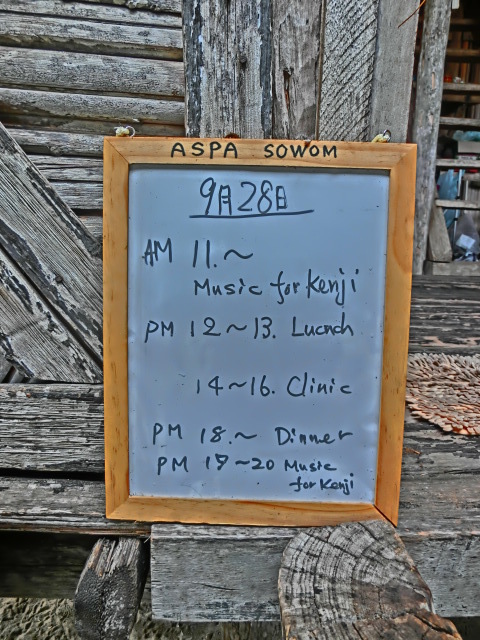 ASPA SOWOM
9月28日
AM 11.~
Music for Kenji
PM 12~13. Lucnch
14~16. Clinic
PM 18.~ Dinner
PM 19~20 Music
for Kenji